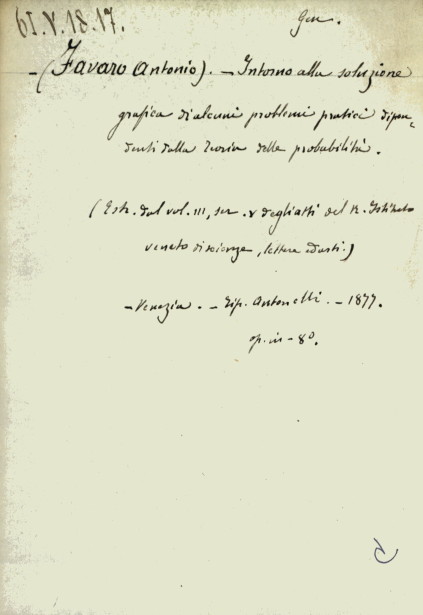 61.V.18.17.
Gen.
-(Favaro Antonio). - Intorno alla soluzione
grafica di alcuni problemi pratici dipen-
denti dalla teoria delle probabilità.
(Estr. dal vol. III, ser. V degli atti del R. Istituto
veneto di scienze, lettere ed arti.)
- Venezia. - Tip. Antonelli. - 1877.
op. in - 8º.